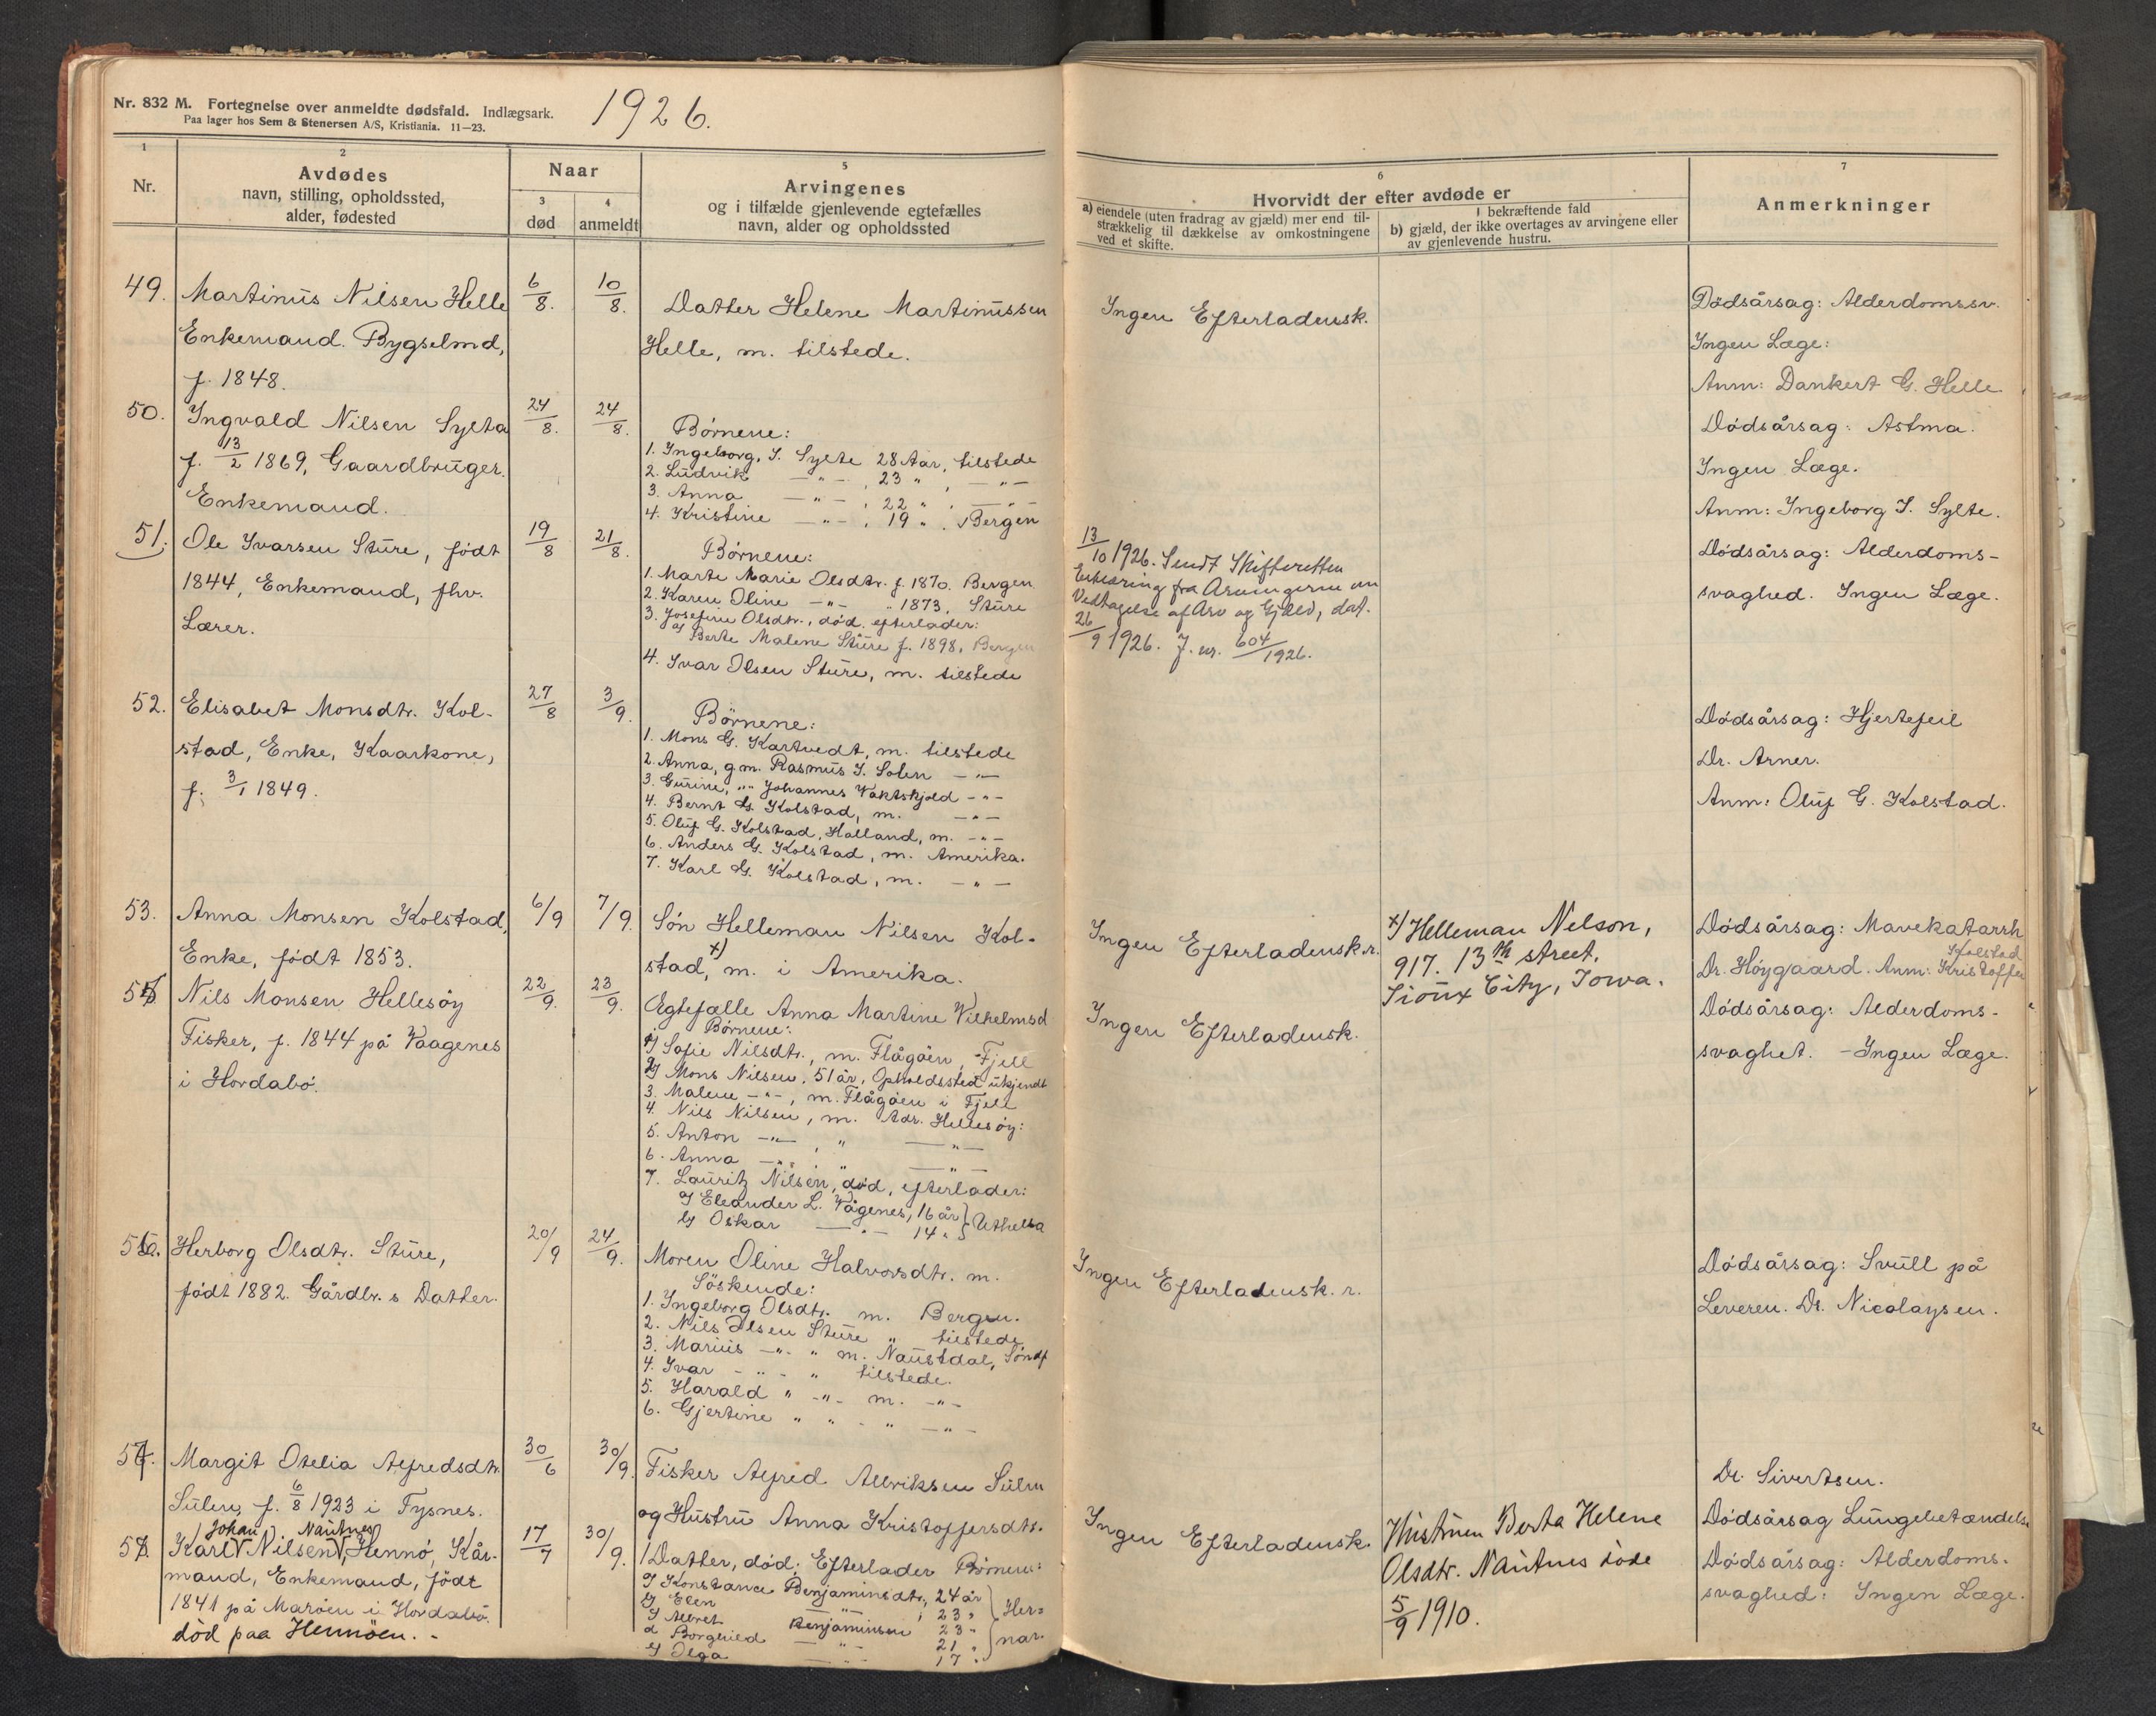 Nr. 832 M. Fortegnelse over anmeldte dødsfald. Indlægsark.
Paa lager hos Sem & Stenersen A/S, Kristiania. 11—23.
1926.
1
Nr.
2
Avdødes
navn, stilling, opholdssted,
alder, fødested
Naar
3
død
4
anmeldt
5
Arvingenes
og i tilfælde gjenlevende egtefælles
navn, alder og opholdssted
6
Hvorvidt der efter avdøde er
a) eiendele (uten fradrag av gjæld) mer end til-
strækkelig til dækkelse av omkostningene
ved et skifte.
I bekræftende fald
b) gjæld, der ikke overtages av arvingene eller
av gjenlevende hustru.
7
Anmerkninger
49. Martinus Nilsen Helle
Enkemand. Bygselmd,
f. 1848.
6/8.
10/8.
Datter Helene Martinussen
Helle, m. tilstede.
Ingen Efterladensk.
Dødsårsag: Alderdomssv.
Ingen Læge:
Anm: Dankert G. Helle
50. Ingvald Nilsen Sylta
f. 13/2 1869, Gaardbruger.
Enkemand.
24/8.
24/8.
Børnene:
1. Ingeborg, I. Sylte 28 Aar, tilstede
2. Ludvik —"— , 23 " , —"—
3. Anna —"— , 22 " , —"—
4. Kristine —"— , 19 " . Bergen
Dødsårsag: Astma.
Ingen Læge.
Anm: Ingeborg I. Sylte.
51. Ole Ivarsen Sture, født
1844, Enkemand, fhv.
Lærer.
19/8
21/8.
Børnene:
1. Marte Marie Olsdtr. f. 1870. Bergen
2. Karen Oline —"— " 1873, Sture
3. Josefine Olsdtr., død. efterlader:
a) Berte Malene Sture f. 1898, Bergen
4. Ivar Olsen Sture, m. tilstede
13/10 1926. Sendt Skifteretten
Erklæring fra Arvingerne om
Vedtagelse af Arv og Gjæld, dat.
26/9 1926. J. nr. 604/1926.
Dødsårsag: Alderdoms-
svaghed. Ingen Læge.
52. Elisabet Monsdtr. Kol-
stad, Enke, Kaarkone,
f. 3/1 1849.
27/8
3/9.
Børnene:
1. Mons G. Kartvedt, m. tilstede
2. Anna, g.m. Rasmus I. Solen —"—
3. Gurine, "" Johannes Vaktskjold —"—
4. Bernt G. Kolstad, m. —"—
5. Oluf G. Kolstad, Halland, m. —"—
6. Anders G. Kolstad, m. Amerika.
7. Karl G. Kolstad, m. —"—
Dødsårsag: Hjertefeil
Dr. Arner.
Anm: Oluf G. Kolstad.
53. Anna Monsen Kolstad,
Enke, født 1853.
6/9
7/9.
Søn Helleman Nilsen Kol-
stad, x) m. i Amerika.
Ingen Efterladensk.r.
x) Helleman Nelson,
917. 13th street,
Sioux City, Iowa.
Dødsårsag: Mavekatarrh
Dr. Høygaard. Anm: Kristoffer
Kolstad
Nils Monsen Hellesøy
Fisker, f. 1844 på Vaagenes
i Hordabø.
22/9.
23/9.
Ægtefælle Anna Martine Vilhelmsd
Børnene:
1) Sofie Nilsdtr., m. Flågøen, Fjell
2) Mons Nilsen, 51 år, Opholdssted ukjendt
3. Malene —"—, m. Flågøen i Fjell
4. Nils Nilsen, m. Adr. Hellesøy:
5. Anton —"— , " —"—
6. Anna —"— , " —"—
7. Lauritz Nilsen, død, efterlader:
a) Eleander L. Vågenes, 16 år
b) Oskar —"— 14 " } Uthella
Ingen Efterladensk.
Dødsårsag: Alderdoms-
svaghet. - Ingen Læge.
Herborg Olsdtr. Sture,
født 1882. Gårdbr.s Datter.
20/9
24/9.
Moren Oline Halvorsdtr. m.
Søskende:
1. Ingeborg Olsdtr. m. Bergen.
2. Nils Olsen Sture " tilstede
3. Marius —"— " m. Naustdal, Søndf
4. Ivar —"— " tilstede.
5. Harald " —"— m. —"—
6. Gjertine " " — " —"—
Ingen Efterladensk.r.
Dødsårsag: Svull på
Leveren. Dr. Nicolaysen.
Margit Otelia Alfredsdtr.
Sulen, f. 6/8 1923 i Fysnes.
30/6
30/9.
Fisker Alfred Allriksen Sulen
og Hustru Anna Kristoffersdtr.
Dr. Sivertsen.
Dødsårsag Lungebetændelse
Johan Nautnes
Karl Nilsen, Hennø, Kår-
mand, Enkemand, født
1841 på Marøen i Hordabø.
død paa Hennøen. -
17/7
30/9.
1 Datter, død; Efterlader Børnene:
a) Konstance Benjaminsdtr., 24 år
b) Elen —"— , 23 "
Albret Benjaminsen 23 "
d Borghild —"— 21 "
e) Olga —"— 17 " } Her=
nar.
Ingen Efterladensk.
Hustruen Berta Helene
Olsdtr. Nautnes døde
5/9 1910.
Dødsårsag: Alderdoms-
svaghed: Ingen Læge.